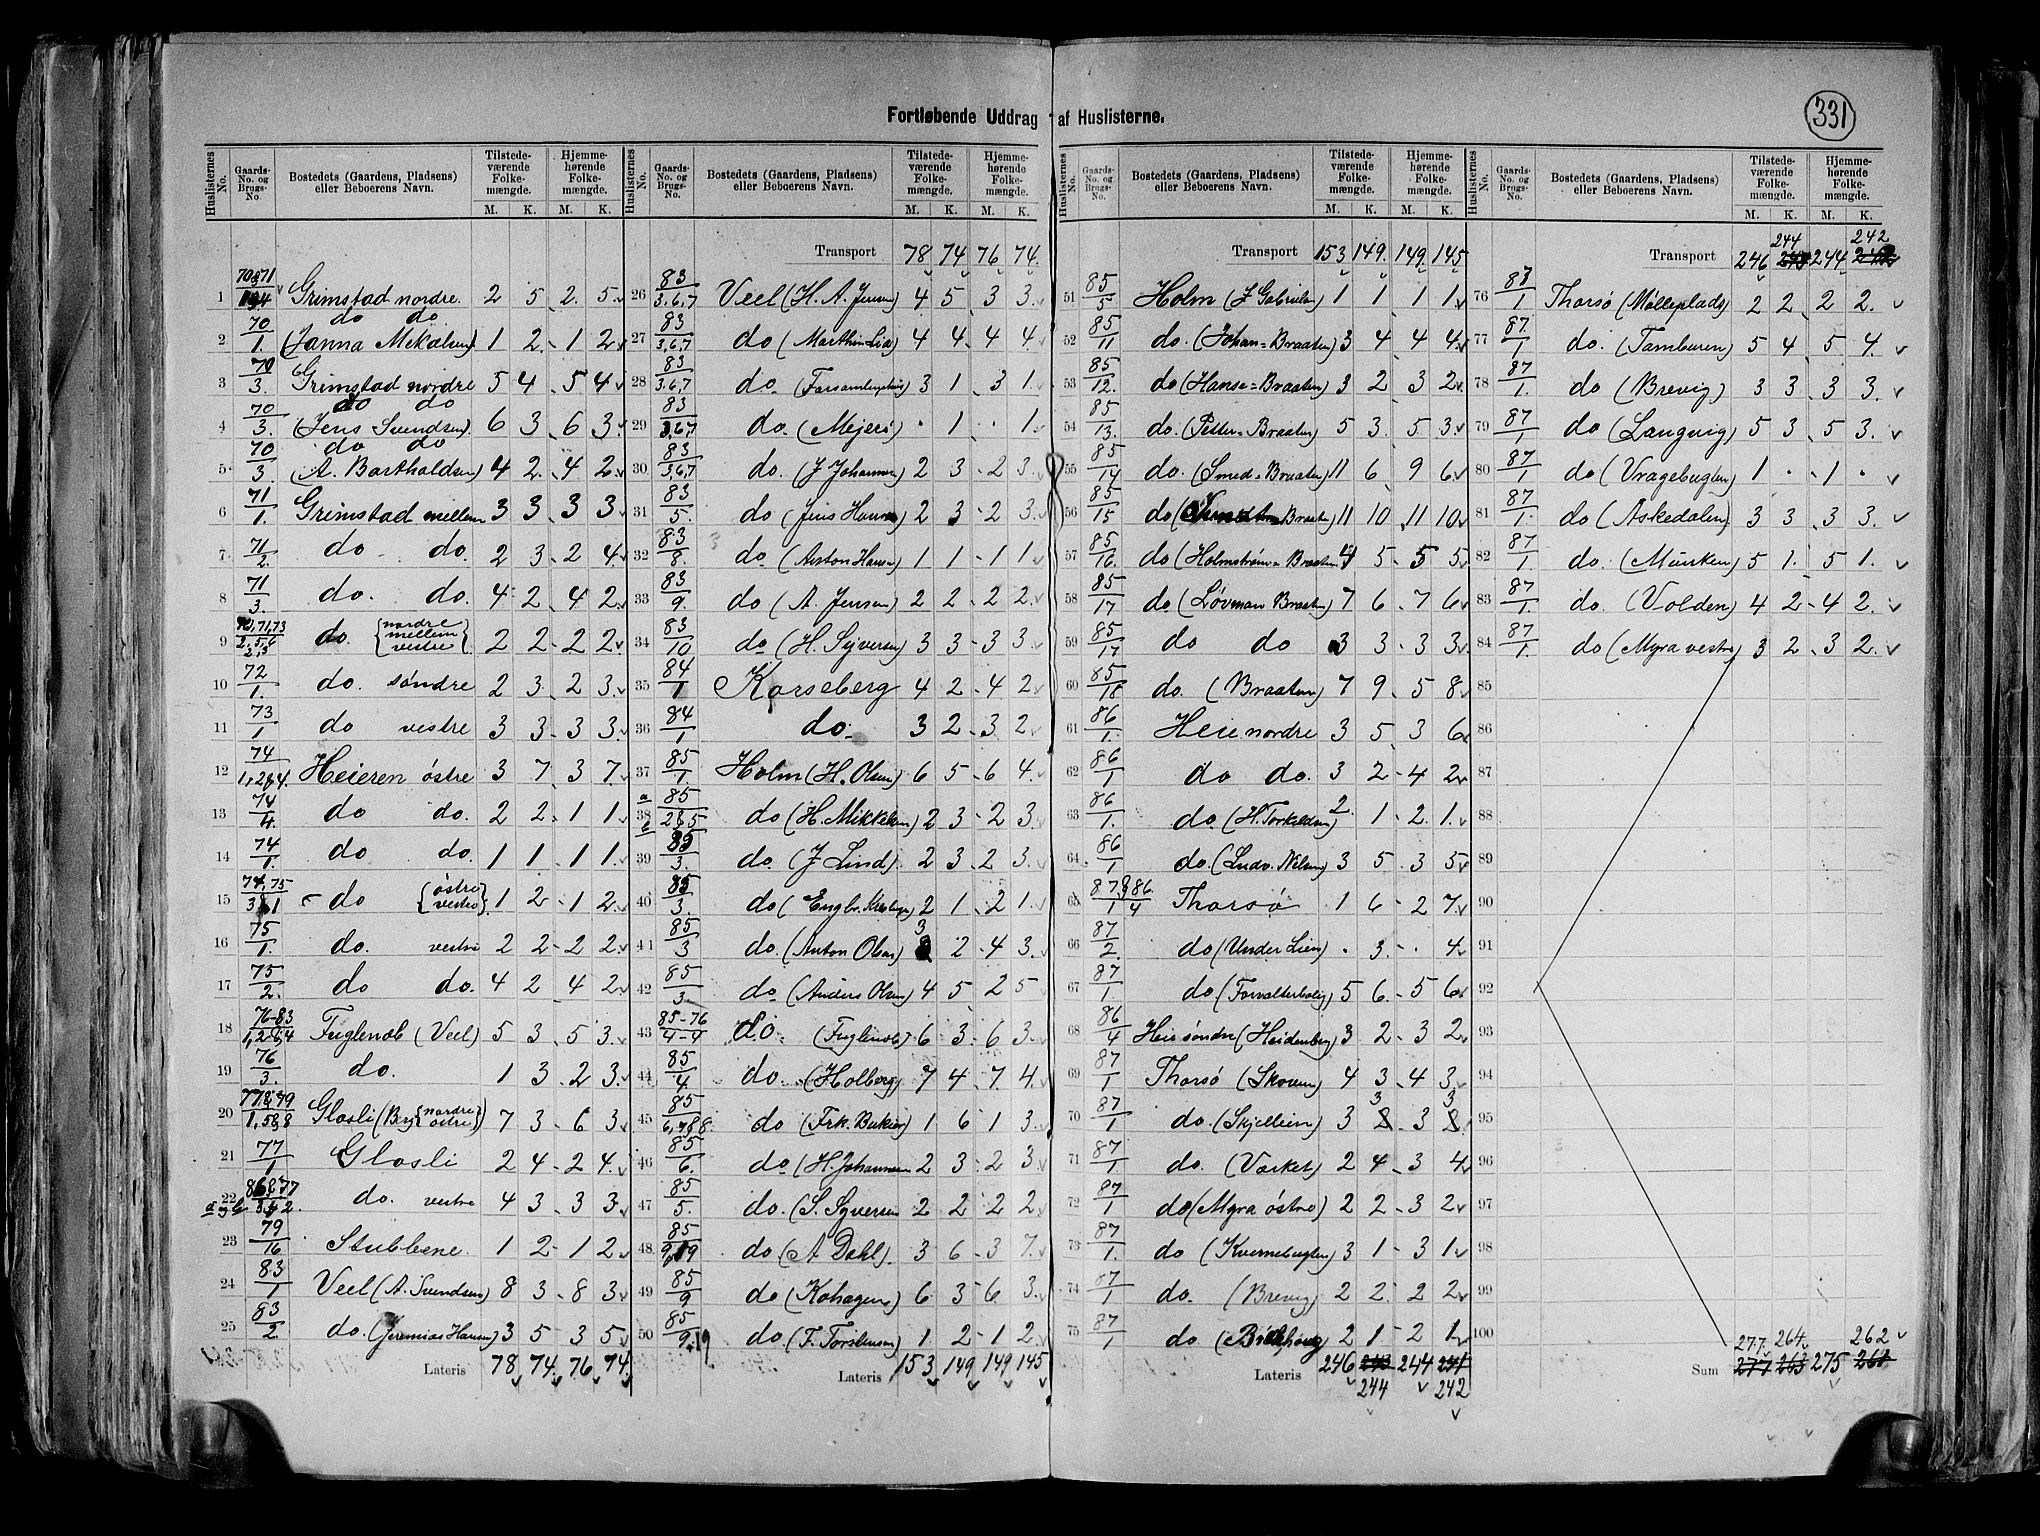 331
Fortløbende Uddrag af Huslisterne.
Huslisternes No. Gaards-No. og Brugs-No. Bostedets (Gaardens, Pladsens) eller Beboerens Navn. Tilstedeværende Folkemængde. M. K. Hjemmehørende Folkemængde. M. K.
1 Grimstad nordre. 2 5 2 5
do do
2 70/1. (Janna Mikalsen) 1 2 1 2
3 70/3. Grimstad nordre 5 4 5 4
do do
4 70/3. (Jens Svendsen). 6 3 6 3
do do
5 70/3 (A. Bartholdsen) 4 2 4 2
6 71/1. Grimstad mellem 3 3 3 3
7 71/2. do do. 2 3 2 4
8 71/3. do. do. 4 2 4 2
9 do. {nordre mellem vestre} 2 2 2 2
10 72/1. do. søndre 2 3 2 3
11 73/1 do vestre 3 3 3 3
12 74/1,2&4. Heieren østre 3 7 3 7
13 74/4. do do. 2 2 1 1
14 74/1. do do. 1 1 1 1
15 74,75/3&1 do {østre vestre} 1 2 1 2
16 75/1. do. vestre 2 2 2 2
17 75/2. do do. 4 2 4 2
18 76-83/1,2-&,4 Fuglenæb (Veel) 5 3 5 3
19 76/3. do. 1 3 2 3
20 Glosli (Berg {nordre østre}) 7 3 6 3
21 77/1 Glosli 2 4 2 4
22 do. vestre 4 3 3 3
23 79/16 Stubbene. 1 2 1 2
24 83/1 Veel (A. Svendsen) 8 3 8 3
25 83/2 do. (Jeremias Hansen) 3 5 3 5
Lateris 78 74 76 74
Transport 78 74 76 74
26 83/3,6,7 Veel (H. A. Jensen) 4 5 3 3
27 83/3,6,7 do (Marthin Lia) 4 4 4 4
28 83/3,6,7 do. 3 1 3 1
29 83/3,6,7 do. (Mejeri) . 1 . 1
30 83/3,6,7 do. (J Johannsen) 2 3 2 3
31 83/5. do (Jens Hansen) 2 3 2 3
32 83/8. do (Anton Hansen) 1 1 1 1
33 83/9. do (A. Jensen) 2 2 2 2
34 83/10 do (H. Syversen) 3 3 3 3
35 84/1 Korseberg 4 2 4 2
36 84/1 do. 3 2 3 2
37 85/1 Holm (H. Olsen) 6 5 6 4
38 85/2&5 do (H. Mikkelsen) 2 3 2 3
39 85/3. do. (J Lind) 2 3 2 3
40 85/3. do 2 1 2 1
41 85/3 do. (Anton Olsen) 3 2 4 3
42 85/3. do. (Anders Olsen) 4 5 2 5
43 85-76/4-4 do. (Fuglenæb) 6 3 6 3
44 85/4. do. (Holberg) 7 4 7 4
45 85/6,7&8. do (Frk. Bukier) 1 6 1 3
46 85/6. do. (H. Johannsen 2 3 2 3
47 85/5. do. (S. Syversen 2 2 2 2
48 85/9,19 do (A Dahl). 3 6 3 7
49 85/9 do (Kohagen) 6 3 6 3
50 85/9,19 do. (F. Torstensen) 1 2 1 2
Lateris 153 149 149 145
Transport 153 149 149 145
51 85/5 Holm (J Gabrielsen) 1 1 1 1
52 85/11 do. (Johan = Braaten) 3 4 4 4
53 85/12. do (Hanse = Braaten) 3 2 3 2
54 85/13. do. (Petter = Braaten) 5 3 5 3
55 85/14 do. (Smed = Braaten) 11 6 9 6
56 85/15 do Braaten) 11 10 11 10
57 85/16. do (Holmstrøm = Braaten 4 5 5 5
58 85/17 do (Løvman Braaten) 7 6 7 6
59 85/17 do do 3 3 3 3
60 85/18 do. (Braaten) 7 9 5 8
61 86/1. Heie nordre 3 5 3 6
62 86/1 do do. 3 2 4 2
63 86/1. do. (H. Torkildsen) 2 1 2 1
64 86/1 do. (Ludv. Nilsen) 3 5 3 5
65 87&86/1 4 Thorsø 1 6 2 7
66 87/2. do (Under Lien) . 3 . 4
67 87/1. do (Forvalterbolig) 5 6 5 6
68 86/4 Heie søndre (Heidenberg) 3 2 3 2
69 87/1 Thorsø (Skoven) 4 3 4 3
70 87/1 do. (Skjellein) 3 3 3 3
71 87/1 do. (Værket) 2 4 3 4
72 87/1 do (Myra østre) 2 2 3 2
73 87/1. do (Kvernebugten) 3 1 3 1
74 87/1 do. (Brevig) 2 2 2 2
75 87/1 do 2 1 2 1
Lateris 246 243 244 241
244 242
244 242
Transport 246 243 244
76 87/1 Thorsø (Mølleplads) 2 2 2 2
77 87/1 do. (Tamburen) 5 4 5 4
78 87/1. do (Brevig) 3 3 3 3
79 87/1 do (Langvig) 5 3 5 3
80 87/1 do (Vragebugten) 1 . 1 .
81 87/1. do (Askedalen) 3 3 3 3
82 87/1. do. (Munken) 5 1 5 1
83 87/1. do. (Volden) 4 2 4 2
84 87/1. do (Myra vestre) 3 2 3 2
85
86
87
88
89
90
91
92
93
94
95
96
97
98
99
100
277 264 262
Sum 277 263 275 261